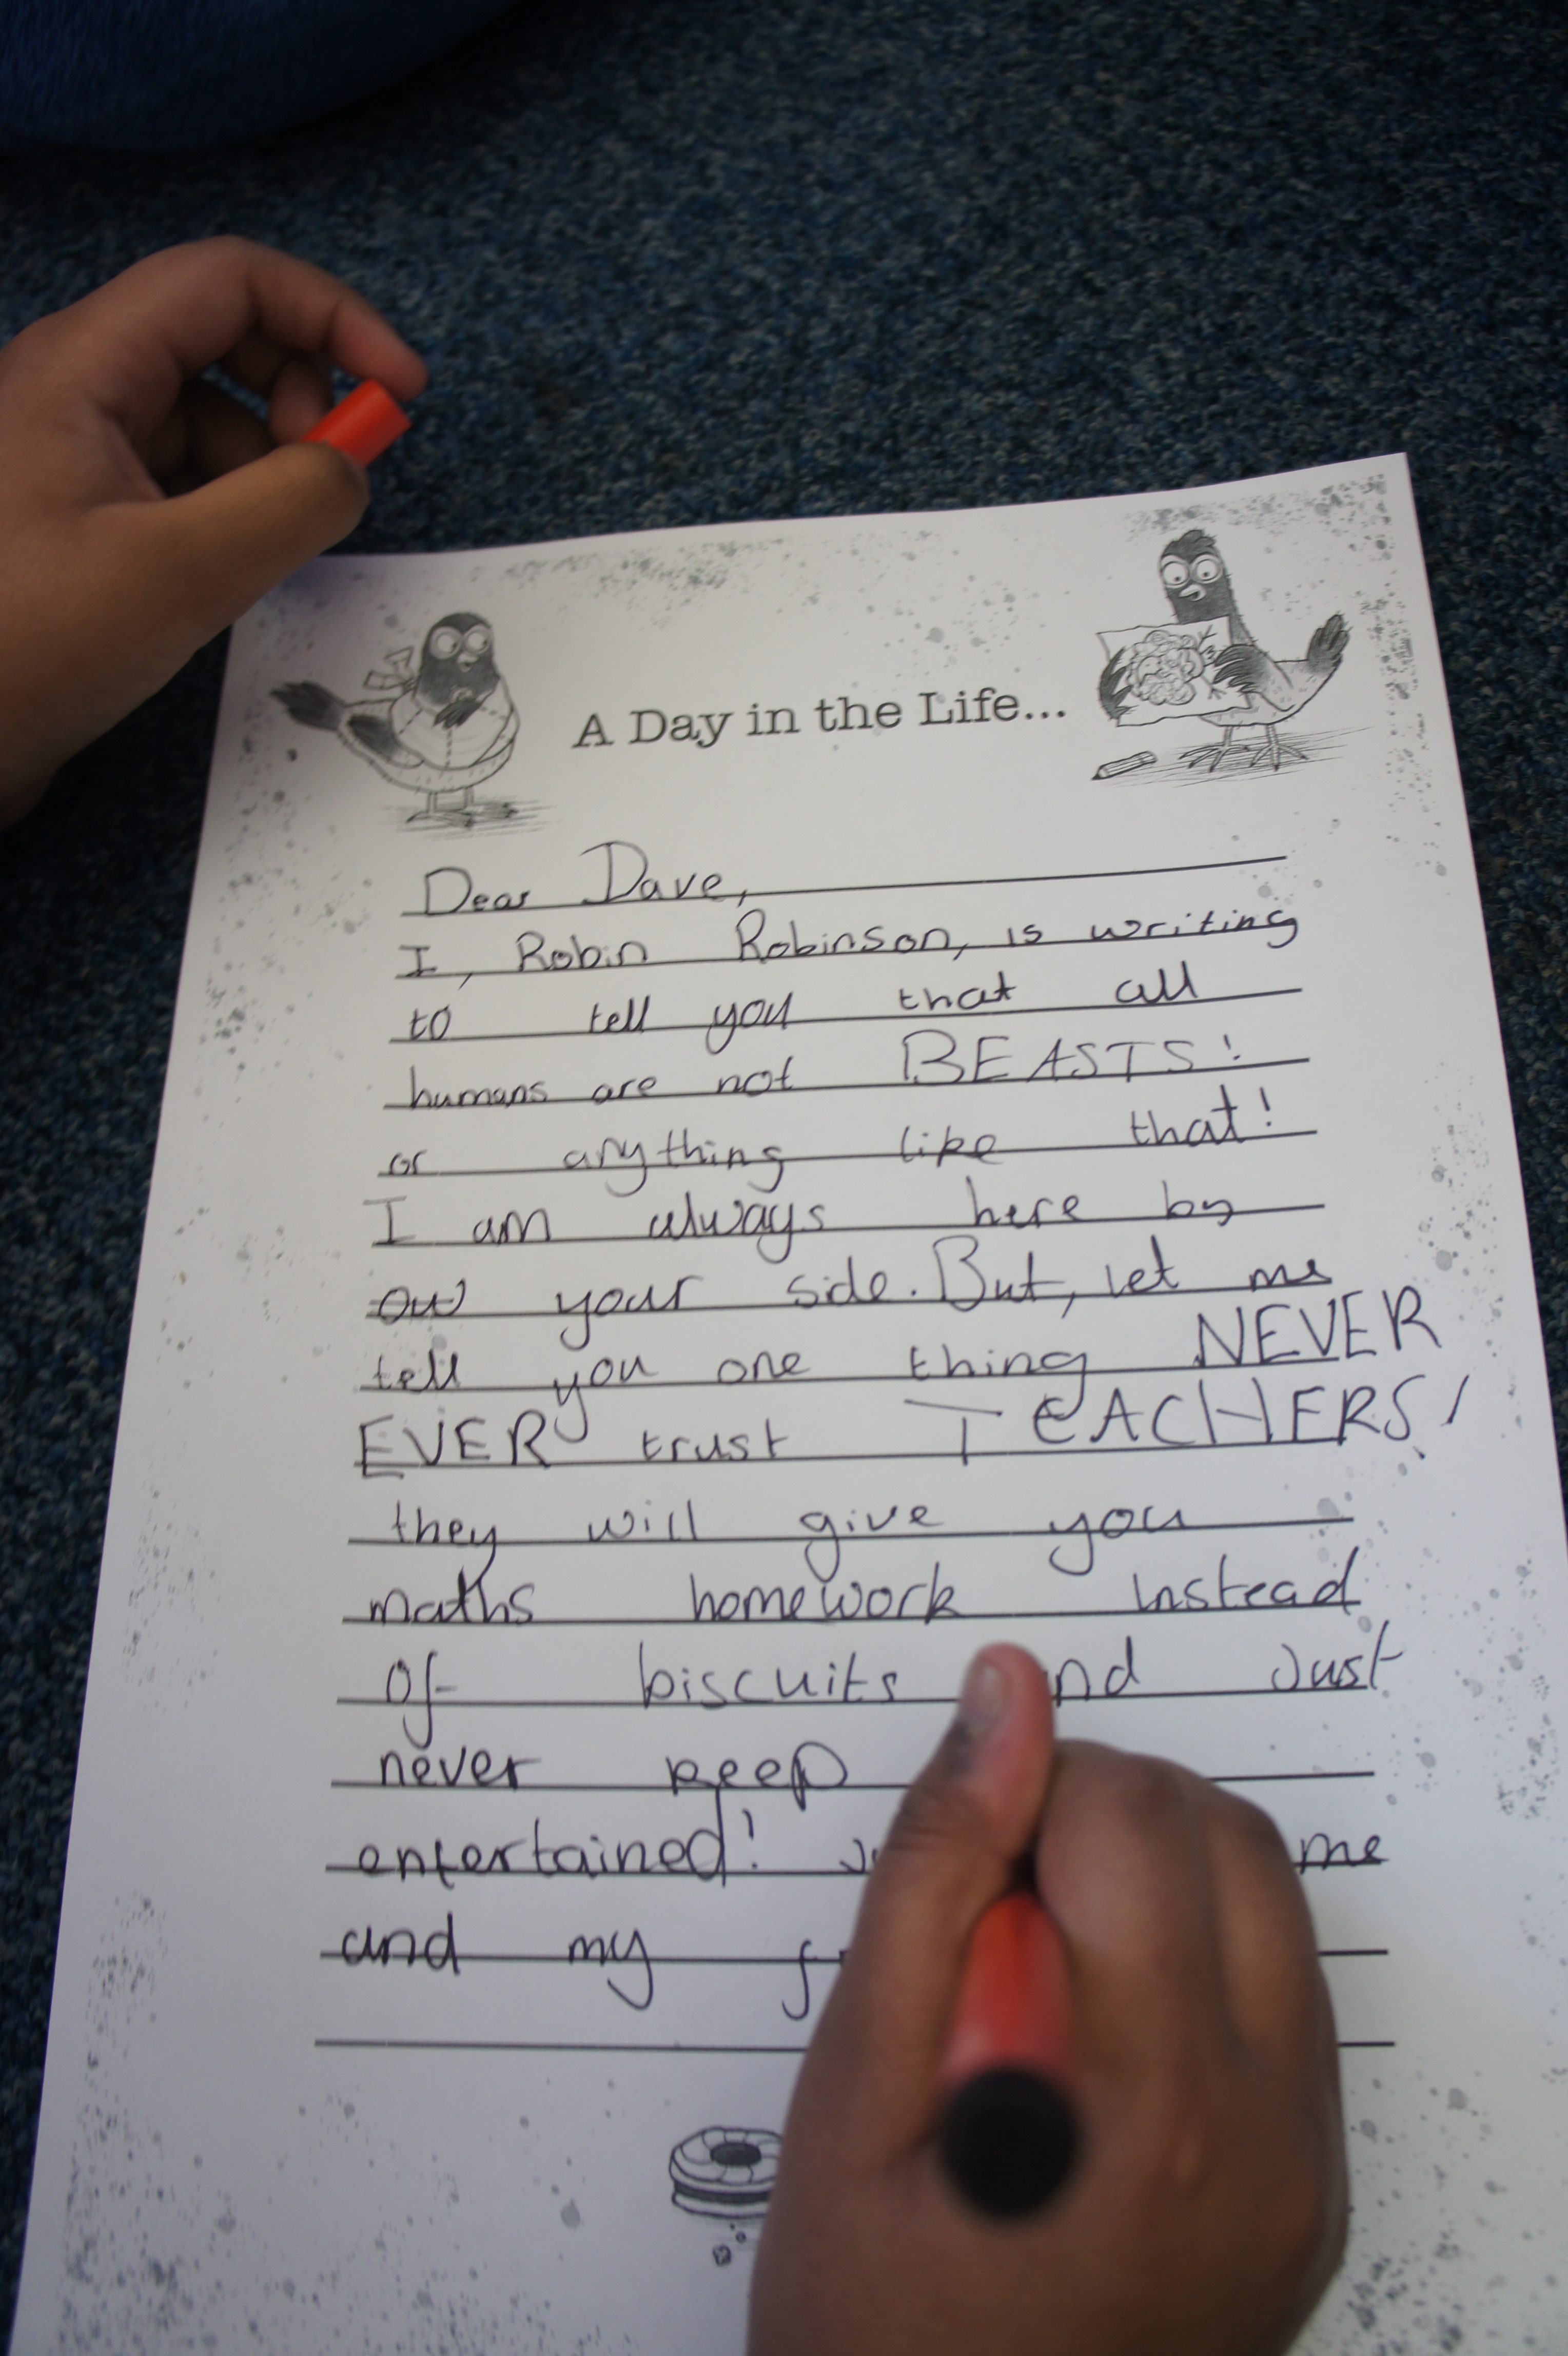 A Day in the Life...
Dear Dave,
I, Robin Robinson, is writing
to tell you that all
humans are not BEASTS!
or anything like that!
I am always here by
your side. But, let me
tell you one thing NEVER
EVER trust TEACHERS!
they will give you
maths homework instead
of biscuits and Just
never keep
entertained! me
and my